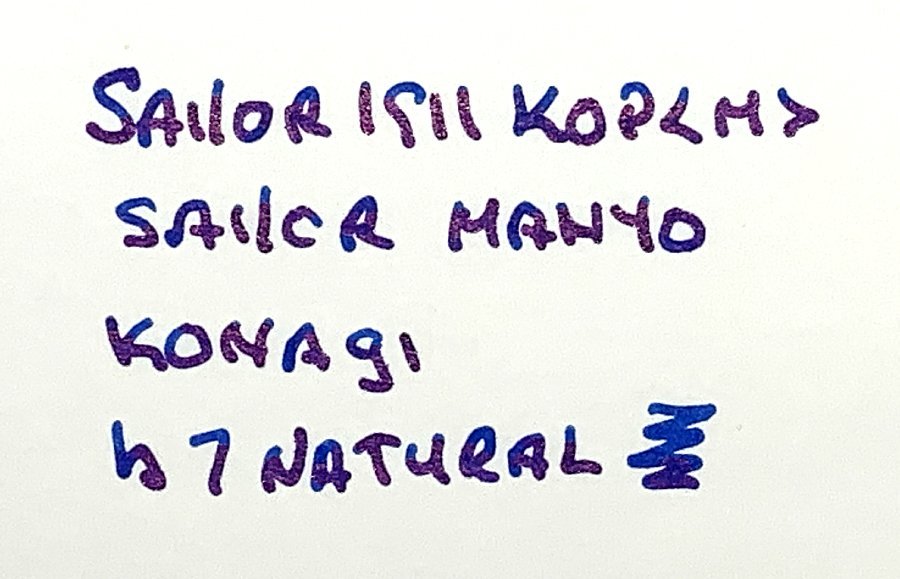 SAILOR 1911 KOP
SAILOR MANYO
KONAGI
67 NATURAL